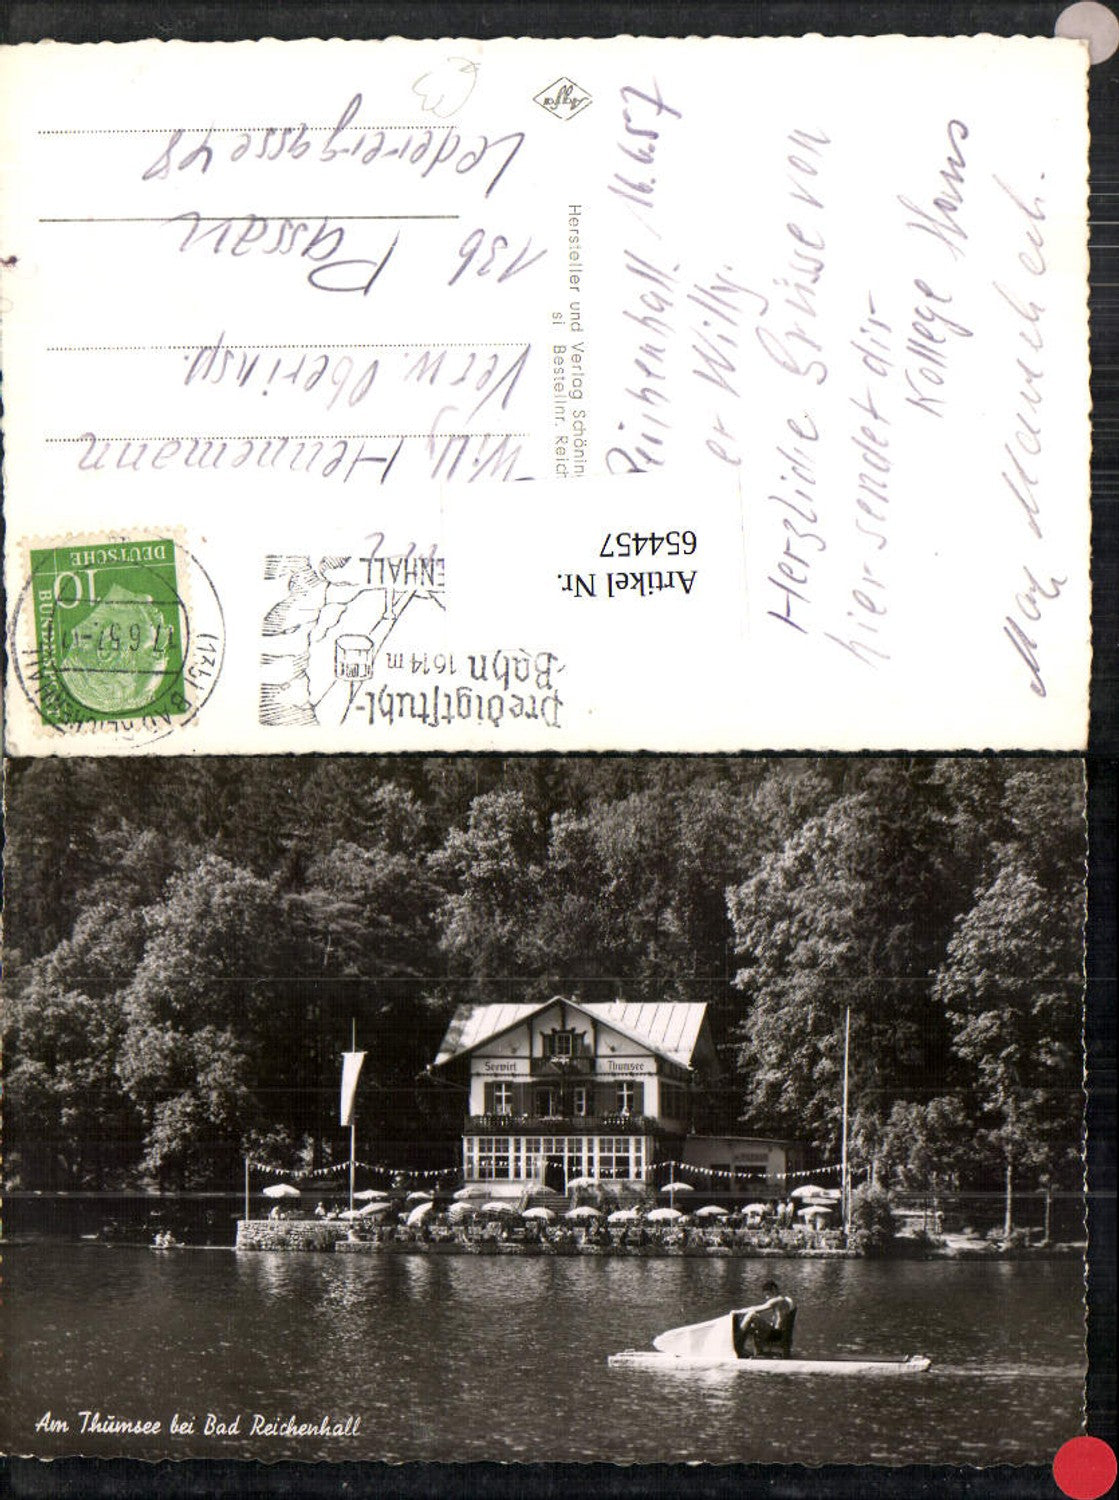 Agfa
Reichenhall. 16.6.57
er Willy.
Herzliche Grüsse von
hier sendet dir
Kollege Hans
Willy Hennemann
Verw. Oberinsp.
13b Passau
Lederergasse 48
Hersteller und Verlag Schöning
si Bestellnr. Reich
DEUTSCHE
BUNDESPOST
10
(13b) BAD REICHENHALL
17.6.57
Predigtstuhl-
Bahn 1614 m
ENHALL
Artikel Nr.
654457
Seewirt Thumsee
Am Thumsee bei Bad Reichenhall